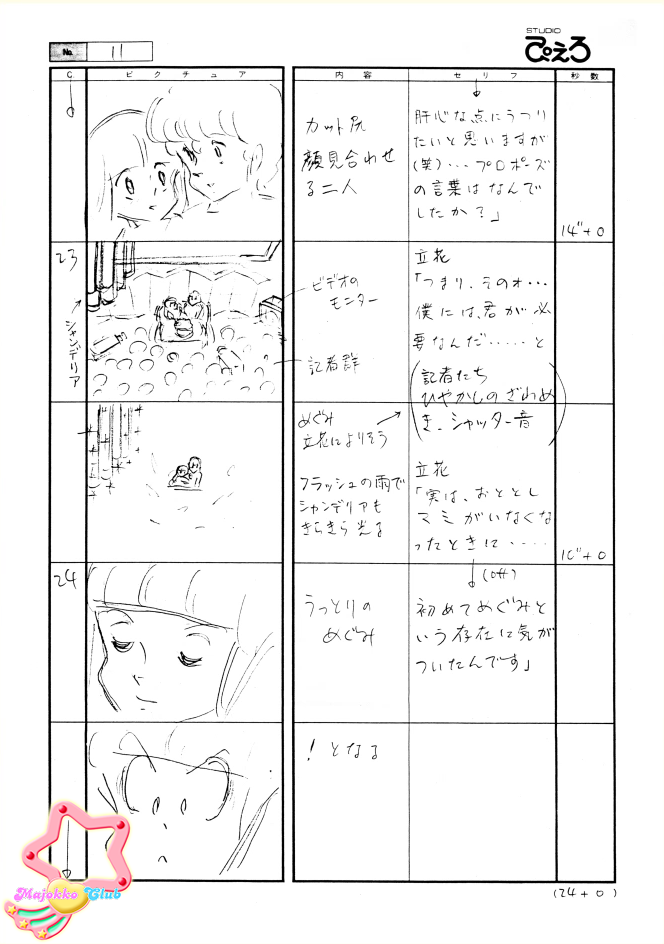 STUDIO
ぴえろ
No. 11
C. ピクチュア 内容 セリフ 秒数
カット尻
顔見合わせ
る二人
肝心な点にうつり
たいと思いますが
(笑)・・・プロポーズ
の言葉はなんで
したか？」
14"+0
23
シャンデリア
ビデオの
モニター
記者群
立花
「つまり、そのォ・・・
僕には、君が必
要なんだ・・・・・と
記者たち
ひやかしのざわめ
き、シャッター音
めぐみ
立花によりそう
フラッシュの雨で
シャンデリアも
きらきら光る
立花
「実は、おととし
マミがいなくな
ったときに・・・・
10"+0
24
うっとりの
めぐみ
(off)
初めてめぐみと
いう存在に気が
ついたんです」
！となる
(24+0)
Majokko Club